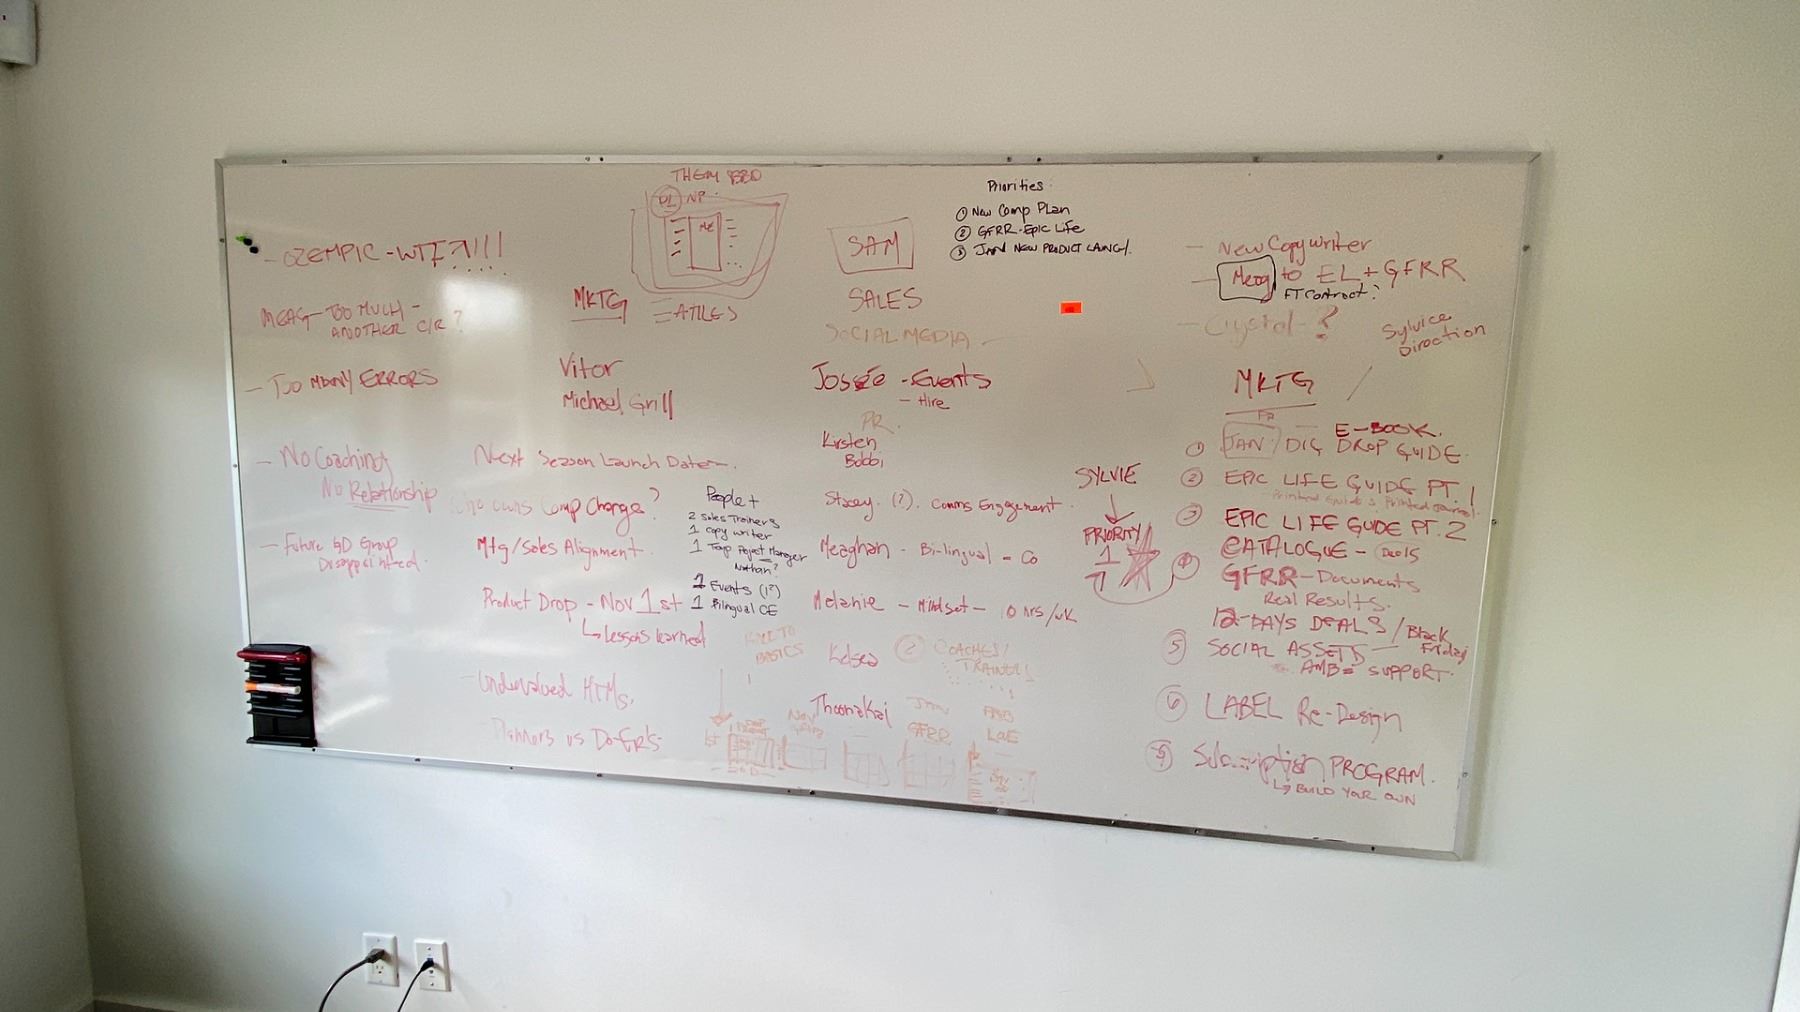 - OZEMPIC - WTF?!!!!
MEAG - TOO MUCH -
ANOTHER C/R ?
- TOO MANY ERRORS
- No Coaching
No Relationship
- Future GD Group
Disappointed.
THEM BBD
D1 NP
ME
MKTG
Vitor
Michael Grill
Next Season Launch Date -
who owns Comp Change?
Mtg/Sales Alignment.
Product Drop - Nov 1st
↳ Lessons learned
- Undervalued HTMs,
- Planners vs Do-Er's
People +
2 Sales Trainers
1 Copy writer
1 Temp Project Manager
Nathan?
1 Events (1?)
1 Bilingual CE
SAM
SALES
SOCIAL MEDIA -
Josée - Events
- Hire
PR.
Kirsten
Bobbi
Stacey. (?). Comms Engagement.
Meaghan - Bi-lingual - Co
Melanie - Mindset - 10 hrs/wk
Kelsea
② COACHES/
TRAINERS
BASICS
NOV
JAN
GFRR
Priorities:
① New Comp Plan
② GFRR - Epic Life
③ JAN NEW PRODUCT LAUNCH.
SYLVIE
↓
PRIORITY
1
- New Copywriter
- Meag to EL + GFRR
FT Contract?
- Crystal - ?
Direction
MKTG
E-BOOK.
① JAN / DIG DROP GUIDE.
② EPIC LIFE GUIDE PT. 1
- Printed Guide & Printed Journal -
③ EPIC LIFE GUIDE PT. 2
CATALOGUE -
④ GFRR - Documents
Real Results.
12-DAYS DEALS / Black Friday
⑤ SOCIAL ASSETS -
AMB = SUPPORT.
⑥ LABEL Re-Design
Subscription PROGRAM.
↳ BUILD YOUR OWN